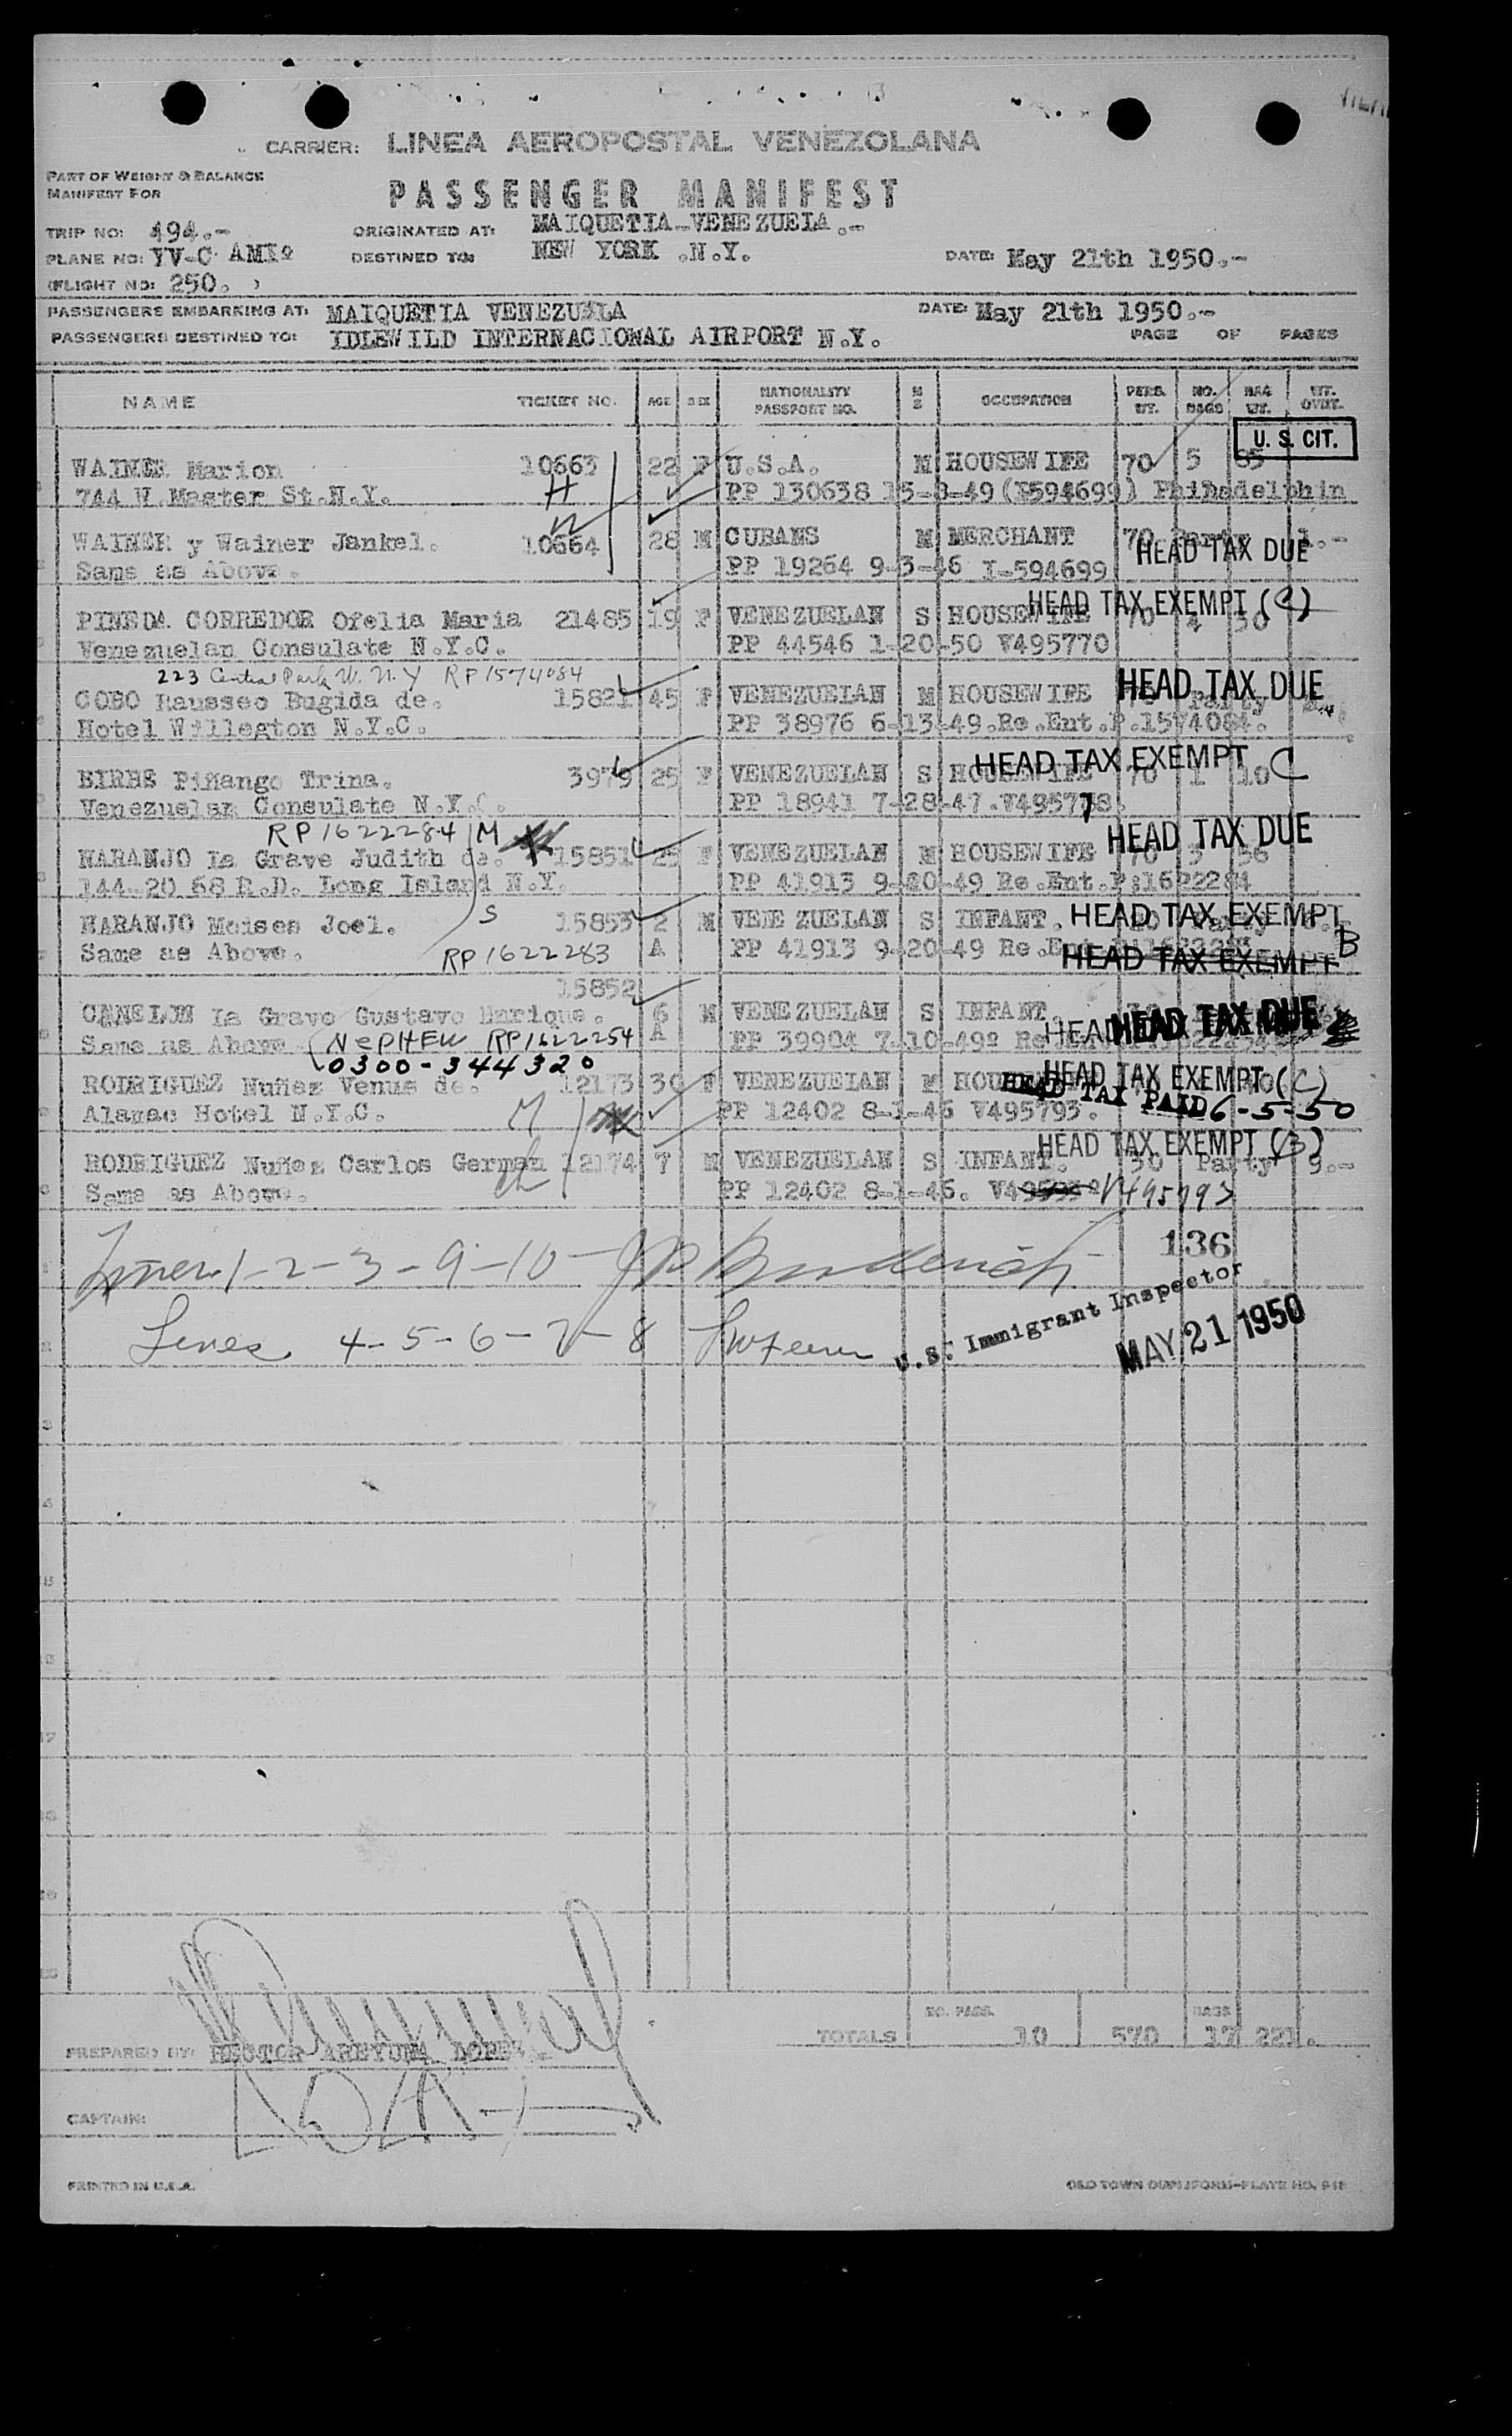 CARRIER: LINEA AEROPOSTAL VENEZOLANA
PART OF WEIGHT & BALANCE
MANIFEST FOR
PASSENGER MANIFEST
TRIP NO: 494.-
ORIGINATED AT: MAIQUETIA-VENEZUELA.-
PLANE NO: YV-C AMI
DESTINED TO: NEW YORK .N.Y.
DATE: May 21th 1950.-
(FLIGHT NO: 250. )
PASSENGERS EMBARKING AT: MAIQUETIA VENEZUELA
DATE: May 21th 1950.-
PASSENGERS DESTINED TO: IDLEWILD INTERNACIONAL AIRPORT N.Y.
PAGE OF PAGES
NAME TICKET NO. AGE SEX NATIONALITY PASSPORT NO. M S OCCUPATION PERS. WT. NO. BAGS BAG WT. WT. OVWT.
U. S. CIT.
WAINER Marion 10663 22 F U.S.A. M HOUSEWIFE 70 5 85
744 W.Master St.N.Y. H PP 130638 15-8-49 (I594699) Philadelphin
W
WAINER y Wainer Jankel. 10664 28 M CUBANS M MERCHANT 70 Party 1.-
HEAD TAX DUE
Same as Above. PP 19264 9-3-46 I-594699
HEAD TAX EXEMPT (C)
PINEDA CORREDOR Ofelia Maria 21485 19 F VENEZUELAN S HOUSEWIFE 70 4 50
Venezuelan Consulate N.Y.C. PP 44546 1-20-50 V495770
223 Central Park W. N.Y RP 1574084
HEAD TAX DUE
COBO Rausseo Bugida de. 15821 45 F VENEZUELAN M HOUSEWIFE 70 Party
Hotel Willegton N.Y.C. PP 38976 6-13-49.Re.Ent.P.1574084.
HEAD TAX EXEMPT C
BIRBS Piñango Trina. 3979 25 F VENEZUELAN S HOUSEWIFE 70 1 10
Venezuelan Consulate N.Y.C. PP 18941 7-28-47.V495778.
7
RP 1622284 M
HEAD TAX DUE
NARANJO la Grave Judith de. 15851 25 F VENEZUELAN M HOUSEWIFE 70 3 56
144-20 68 R.D. Long Island N.Y. PP 41913 9-20-49 Re.Ent.P:1622284
HEAD TAX EXEMPT
NARANJO Moises Joel. S 15853 2 M VENEZUELAN S INFANT.
Same as Above. RP 1622283 A PP 41913 9-20-49 Re.Ent.
B
HEAD TAX EXEMPT
15852
CANELON la Grave Gustavo Enrique. 6 M VENEZUELAN S INFANT.
HEAD TAX DUE
Same as Above (NEPHEW RP1622254 A PP 39904 7-10-49
0300-344320
HEAD TAX EXEMPT (C)
RODRIGUEZ Nuñez Venus de. 12173 30 F VENEZUELAN M
HEAD TAX PAID 6-5-50
Alamac Hotel N.Y.C. M PP 12402 8-1-46 V495793.
HEAD TAX EXEMPT (B)
RODRIGUEZ Nuñez Carlos German 12174 7 M VENEZUELAN S INFANT. 30 Party 9.-
Same as Above. Ch PP 12402 8-1-46. V495793
136
1-2-3-9-10-
Lines 4-5-6-7-8
U.S. Immigrant Inspector
MAY 21 1950
NO. PASS. BAGS
TOTALS 10 570 17 221.
PREPARED BY: HECTOR
CAPTAIN:
PRINTED IN U.S.A.
OLD TOWN DUPLIFORM-PLATE NO.